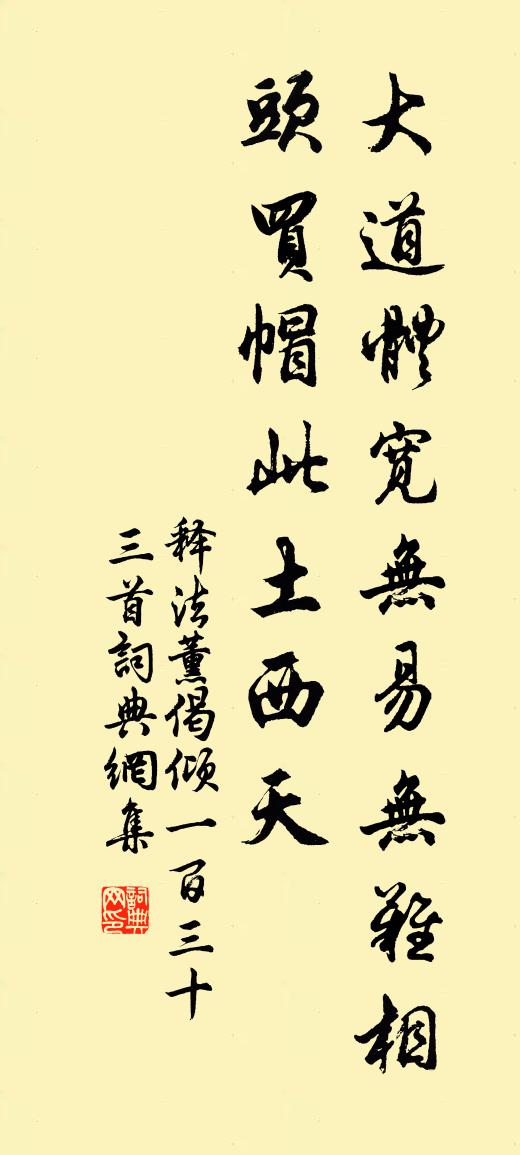 大道體寬無易無難相
頭買帽此土西天
释法薰偈倾一百三十
三首詞典網集
詞典
网印